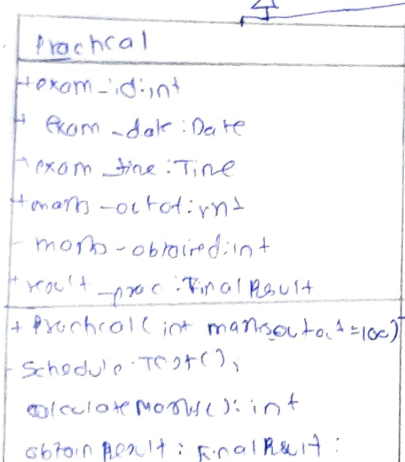 Practical
+exam_id:int
+ exam_date:Date
+exam_time:Time
+marks-outof:int
- marks-obtained:int
+result_prac:FinalResult
+ Practical(int marksoutof=100)
Schedule Test();
calculateMarks():int
obtainResult:FinalResult: